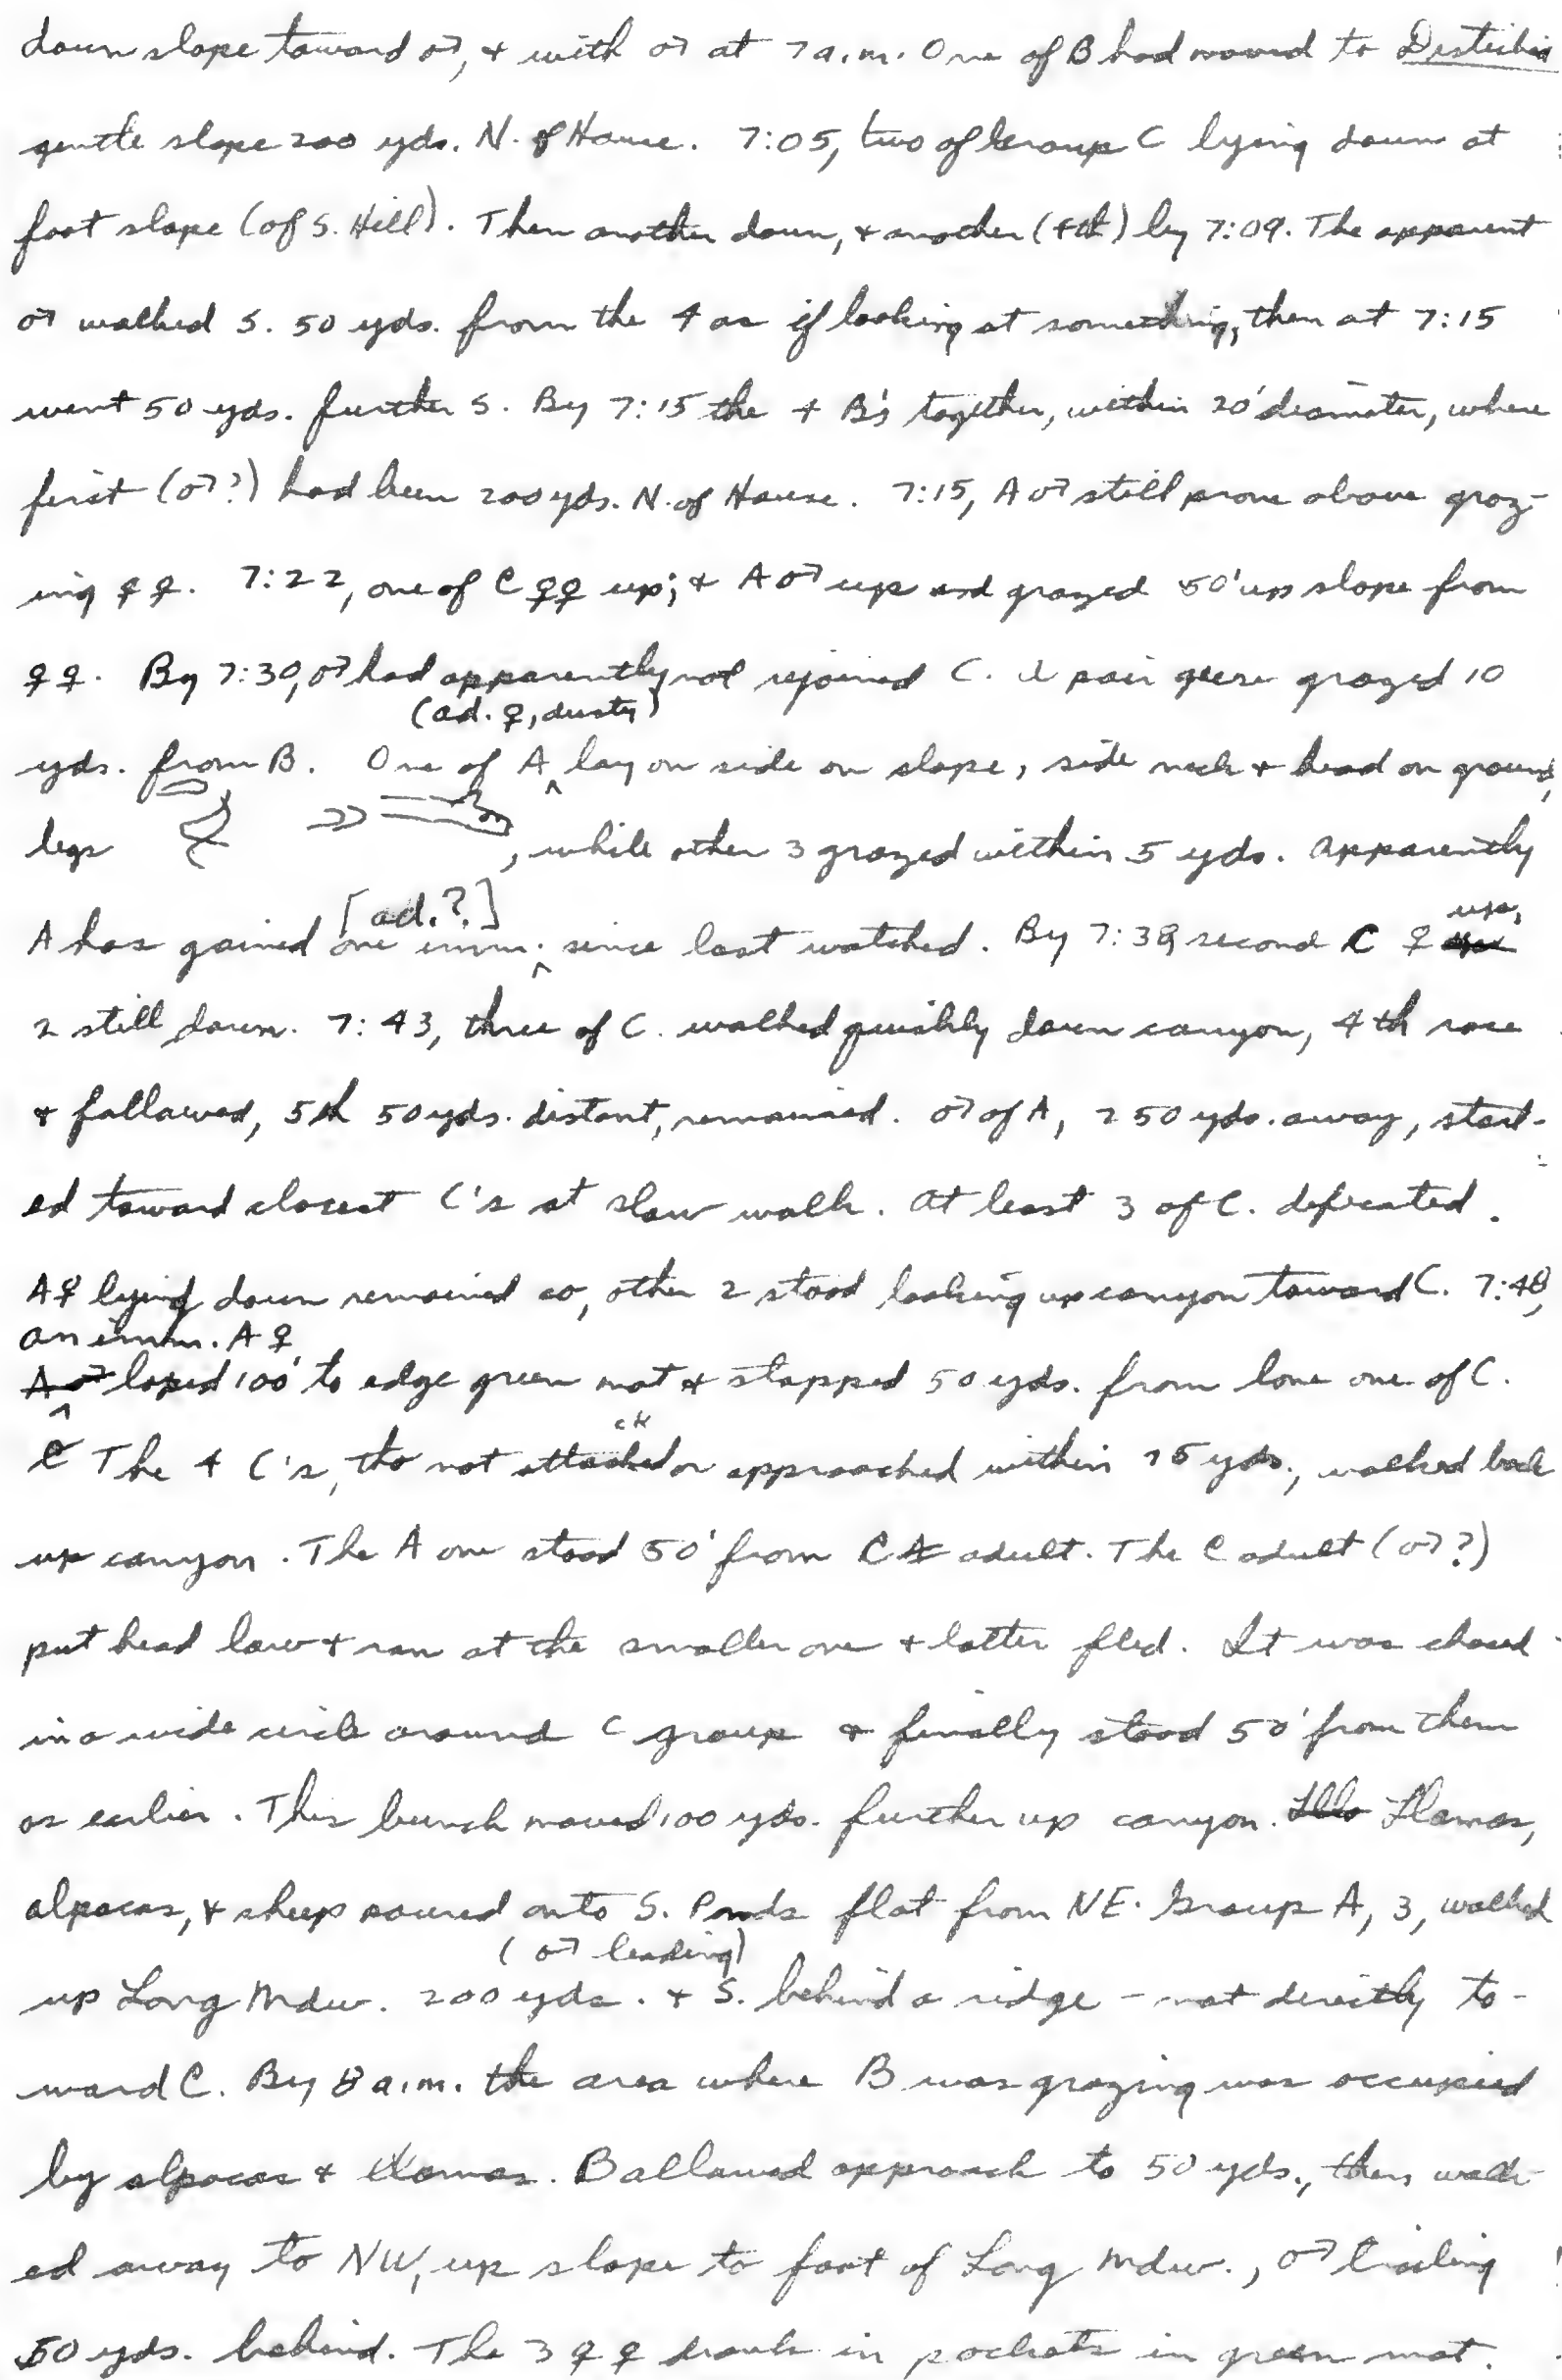 down slope toward ♂, + with ♂ at 7 a.m. One of B had moved to Distichia
gentle slope 200 yds. N. of House. 7:05, two of Group C lying down at
foot slope (of S. Hill). Then another down, + another (4th) by 7:09. The apparent
♂ walked S. 50 yds. from the 4 as if looking at something, then at 7:15
went 50 yds. further S. By 7:15 the 4 B's together, within 20' diameter, where
first (♂?) had been 200 yds. N. of House. 7:15, A ♂ still prone above graz-
ing ♀♀. 7:22, one of C ♀♀ up; + A ♂ up and grazed 50' up slope from
♀♀. By 7:30, ♂ had apparently not rejoined C. A pair geese grazed 10
(ad. ♀, dusty)
yds. from B. One of A ^ lay on side on slope, side neck + head on ground,
legs , while other 3 grazed within 5 yds. Apparently
[ad.?] up,
A has gained one imm. ^ since last watched. By 7:38, second C ♀
2 still down. 7:43, three of C. walked quickly down canyon, 4th rose
+ followed, 5th 50 yds. distant, remained. ♂ of A, 250 yds. away, start-
ed toward closest C's at slow walk. At least 3 of C. defecated.
A ♀ lying down remained so, other 2 stood looking up canyon toward C. 7:48,
an imm. A ♀
A ♂ ^ loped 100' to edge green mat + stopped 50 yds. from lone one of C.
ck
The 4 C's, tho not attacked or approached within 75 yds., walked back
up canyon. The A one stood 50' from C adult. The C adult (♂?)
put head low + ran at the smaller one + latter fled. It was chased
in a wide circle around C group + finally stood 50' from them
as earlier. This bunch moved 100 yds. further up canyon. Llamas,
alpacas, + sheep poured onto S. Ponds flat from NE. Group A, 3, walked
(♂ leading)
up Long Mdw. 200 yds. + S. behind a ridge - not directly to-
ward C. By 8 a.m. the area where B was grazing was occupied
by alpacas + llamas. B allowed approach to 50 yds., then walk-
ed away to NW, up slope to foot of Long Mdw., ♂ trailing
50 yds. behind. The 3 ♀♀ drank in pockets in green mat.